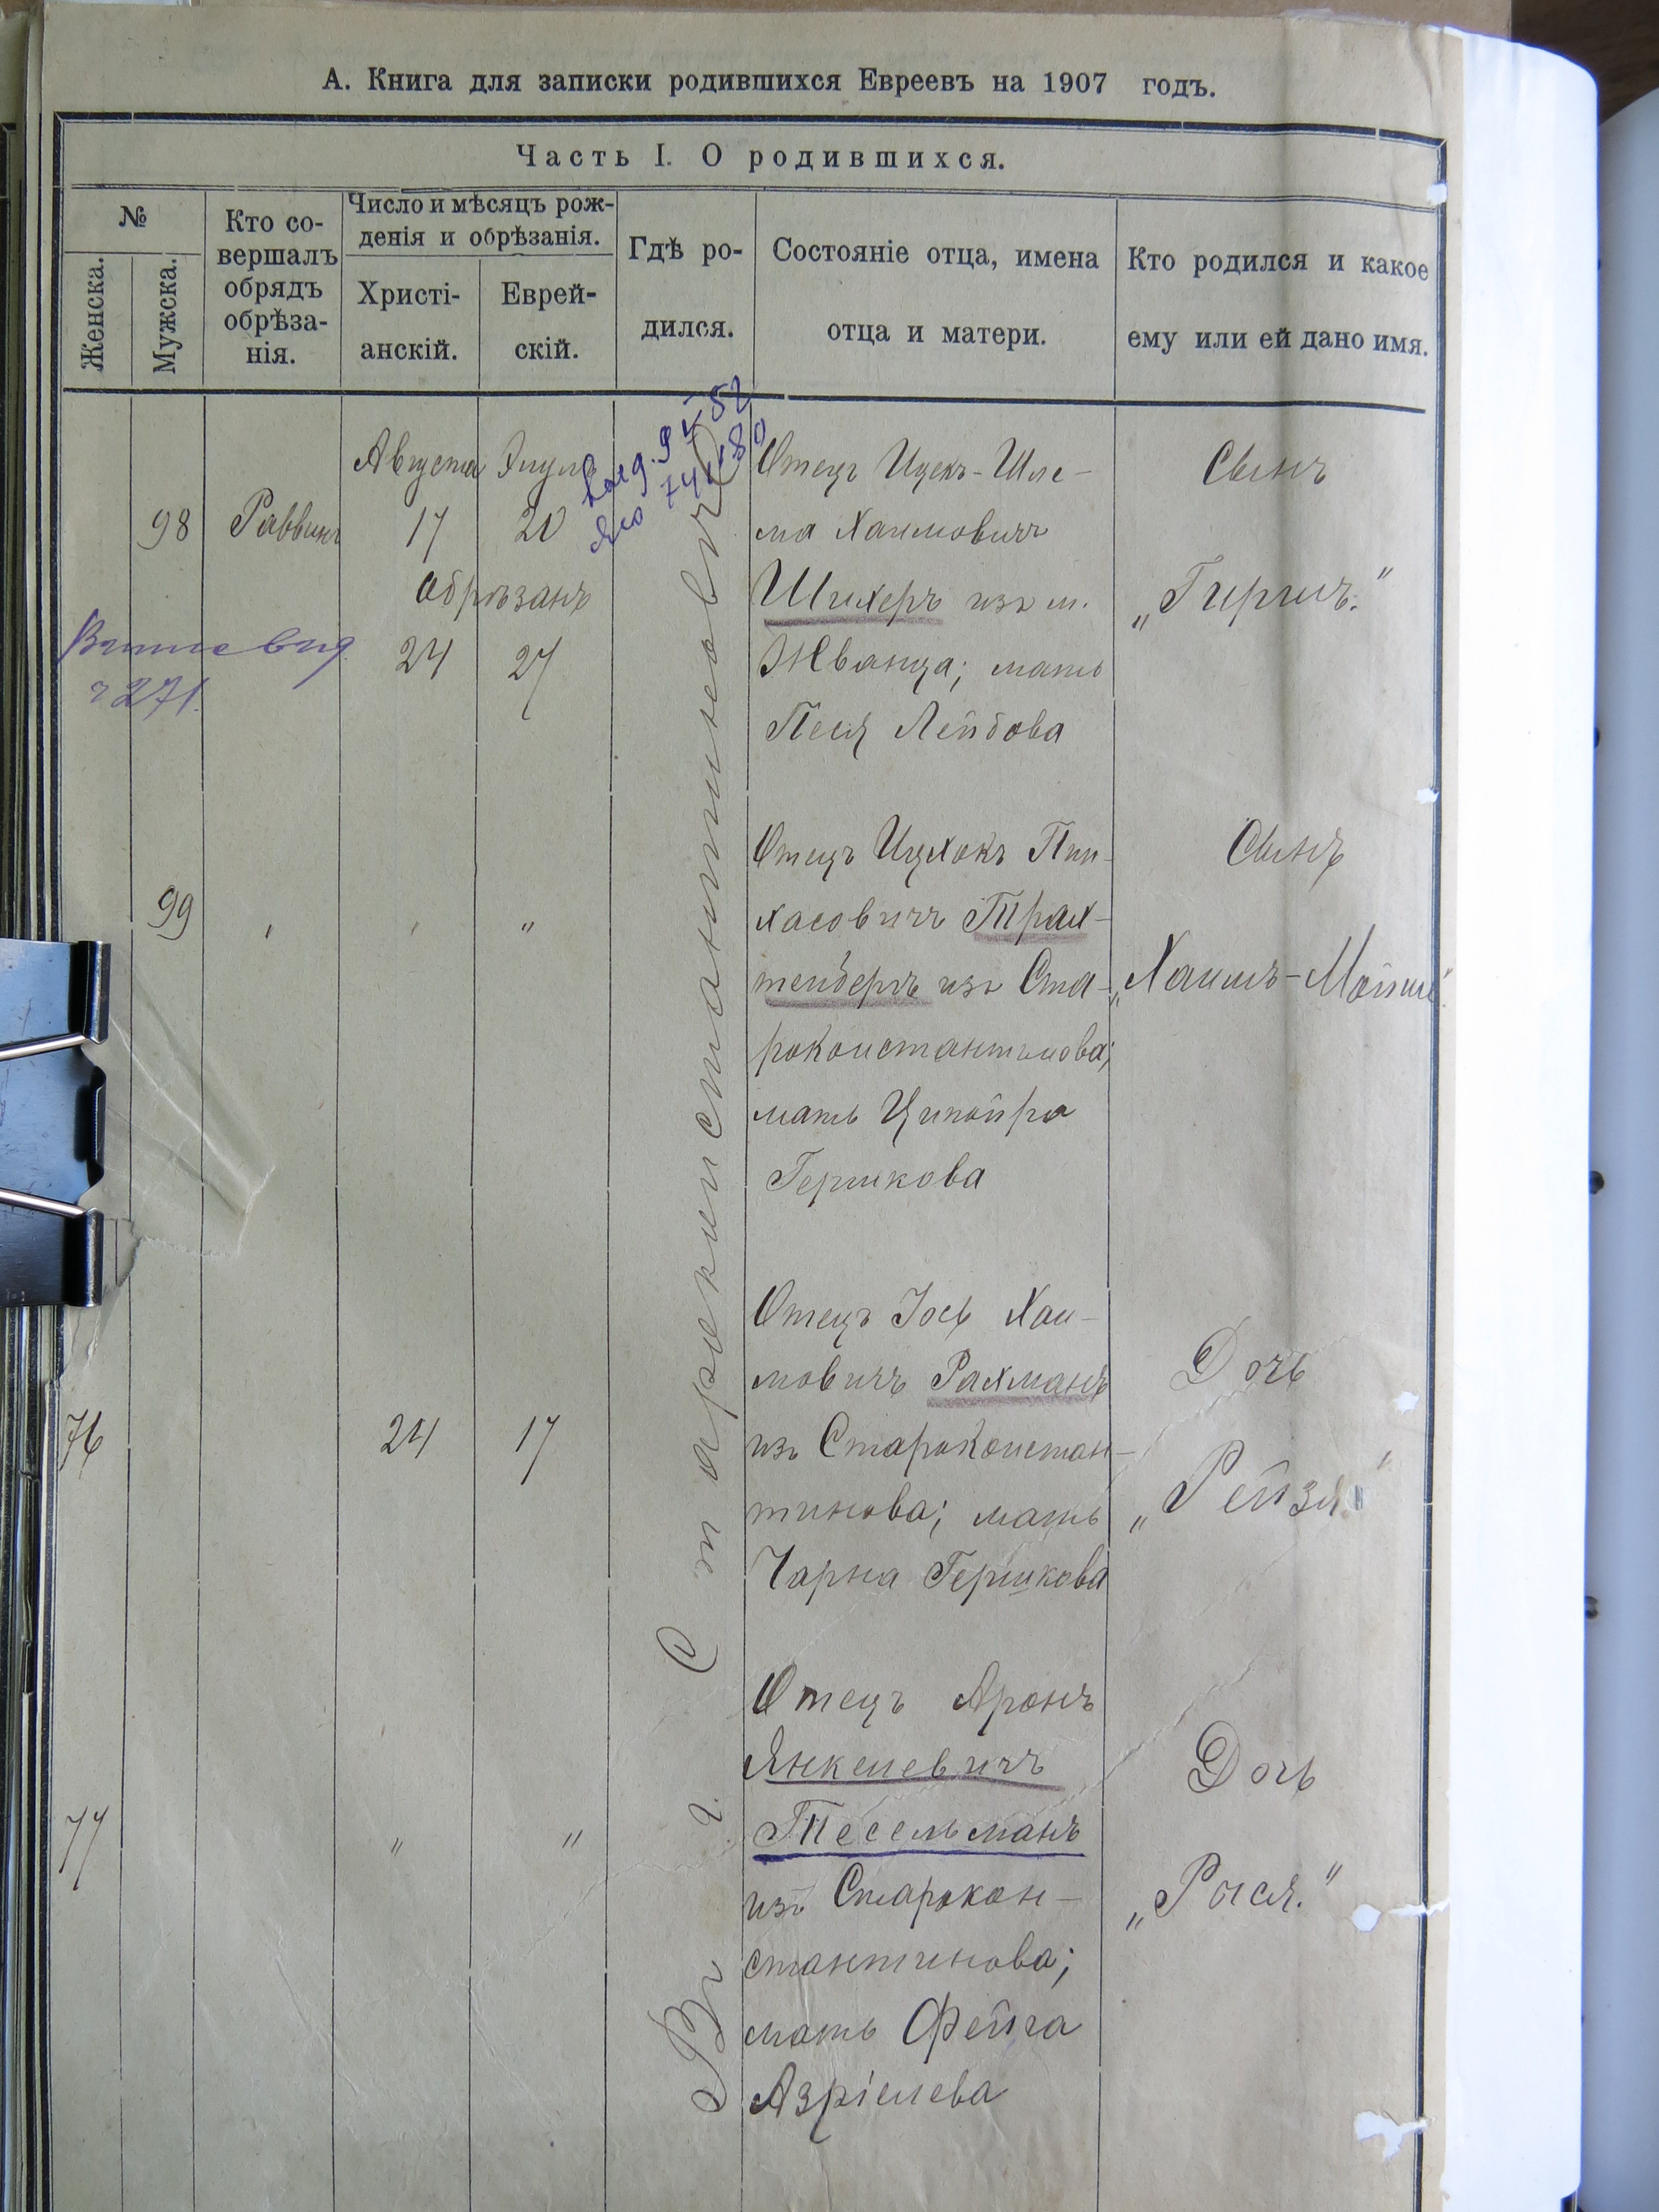 А. Книга для записки родившихся Евреевъ на 1907 годъ.
Часть I. О родившихся.
№
Женска.
Мужска.
Кто со-
вершалъ
обрядъ
обрѣза-
нія.
Число и мѣсяцъ рож-
денія и обрѣзанія.
Христі-
анскій.
Еврей-
скій.
Гдѣ ро-
дился.
Состояніе отца, имена
отца и матери.
Кто родился и какое
ему или ей дано имя.
98
Раввинъ
Августа
17
Элулъ
20
обрѣзанъ
24
27
Въ г. Старокопстантиновѣ
Отецъ Ицекъ-Шле-
ма Хаимовичъ
Шихеръ изъ м.
Жванца; мать
Песя Лейбова
Сынъ
„Гиршъ."
271
99
"
"
"
Отецъ Ицхокъ Пин-
хасовичъ Трах-
тенберъ изъ Ста-
роконстантинова;
мать Ципойра
Гершкова
Сынъ
„Хаимъ-Мойше".
76
24
17
Отецъ Іось Хаи-
мовичъ Рахманъ
изъ Староконстан-
тинова; мать
Чарна Гершкова
Дочь
„Рейзя"
77
"
"
Отецъ Аронъ
Янкелевичъ
Тесельманъ
изъ Старокон-
стантинова;
мать Фейга
Азріелева
Дочь
„Рися."